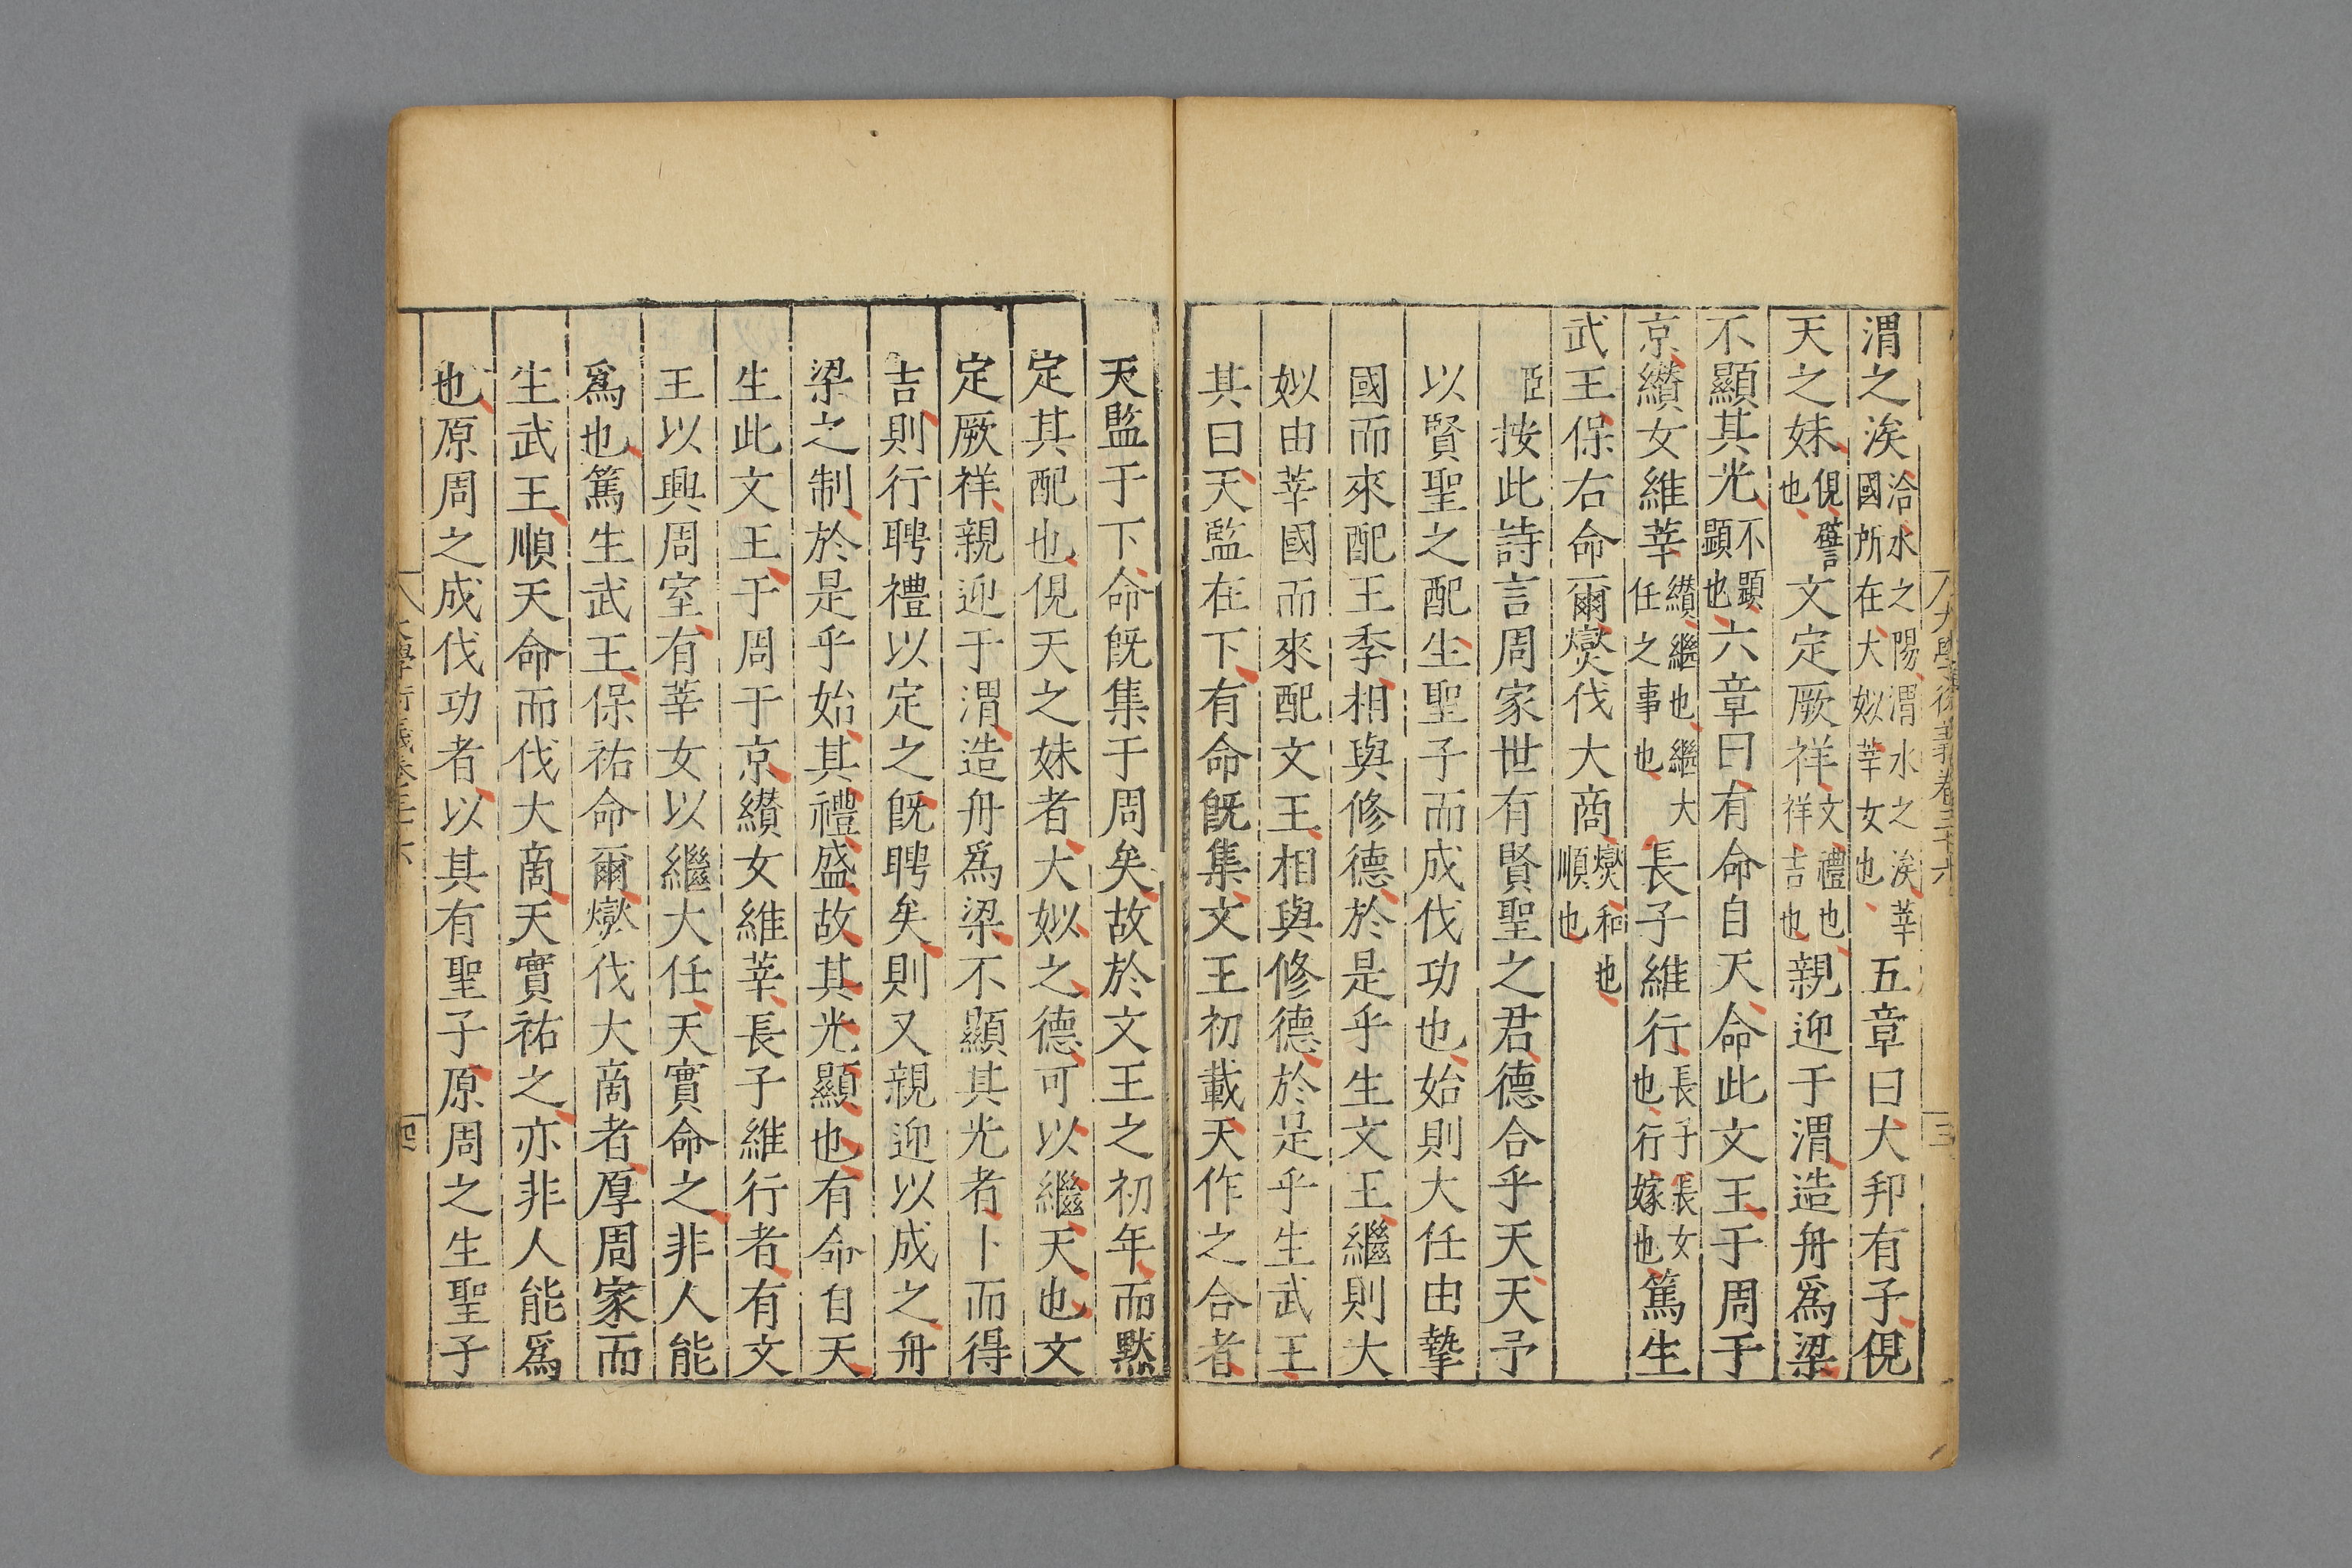 大學衍義卷三十六
三
渭之涘洽水之陽渭水之涘莘國所在大姒莘女也五章曰大邦有子俔
天之妹俔譬也文定厥祥文禮也祥吉也親迎于渭造舟爲梁
不顯其光不顯顯也六章曰有命自天命此文王于周于
京纘女維莘纘繼也繼大任之事也長子維行長子長女也行嫁也篤生
武王保右命爾燮伐大商燮和也順也
臣按此詩言周家世有賢聖之君德合乎天天予
以賢聖之配生聖子而成伐功也始則大任由摯
國而來配王季相與修德於是乎生文王繼則大
姒由莘國而來配文王相與修德於是乎生武王
其曰天監在下有命旣集文王初載天作之合者
天監于下命旣集于周矣故於文王之初年而黙
定其配也俔天之妹者大姒之德可以繼天也文
定厥祥親迎于渭造舟爲梁不顯其光者卜而得
吉則行聘禮以定之旣聘矣則又親迎以成之舟
梁之制於是乎始其禮盛故其光顯也有命自天
生此文王于周于京纘女維莘長子維行者有文
王以興周室有莘女以繼大任天實命之非人能
爲也篤生武王保祐命爾燮伐大商者厚周家而
生武王順天命而伐大商天實祐之亦非人能爲
也原周之成伐功者以其有聖子原周之生聖子
大學衍義卷三十六
四